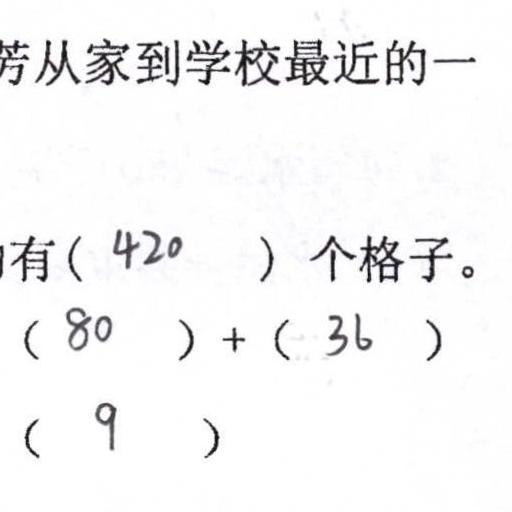 芳从家到学校最近的一
有( 420 ) 个格子。
( 80 ) + ( 36 )
( 9 )